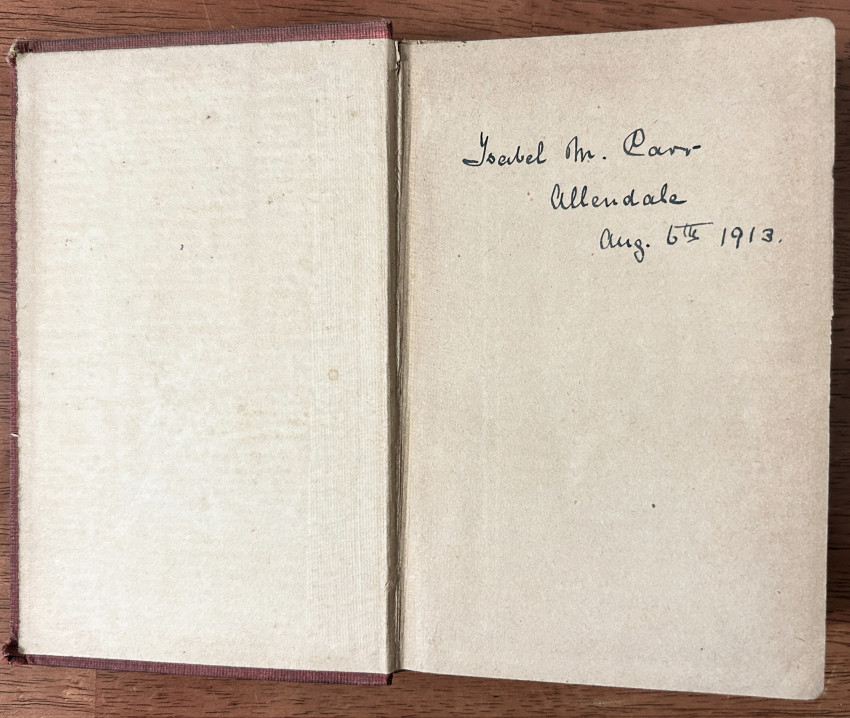 Isabel M. Carr
Allendale
Aug. 6th 1913.